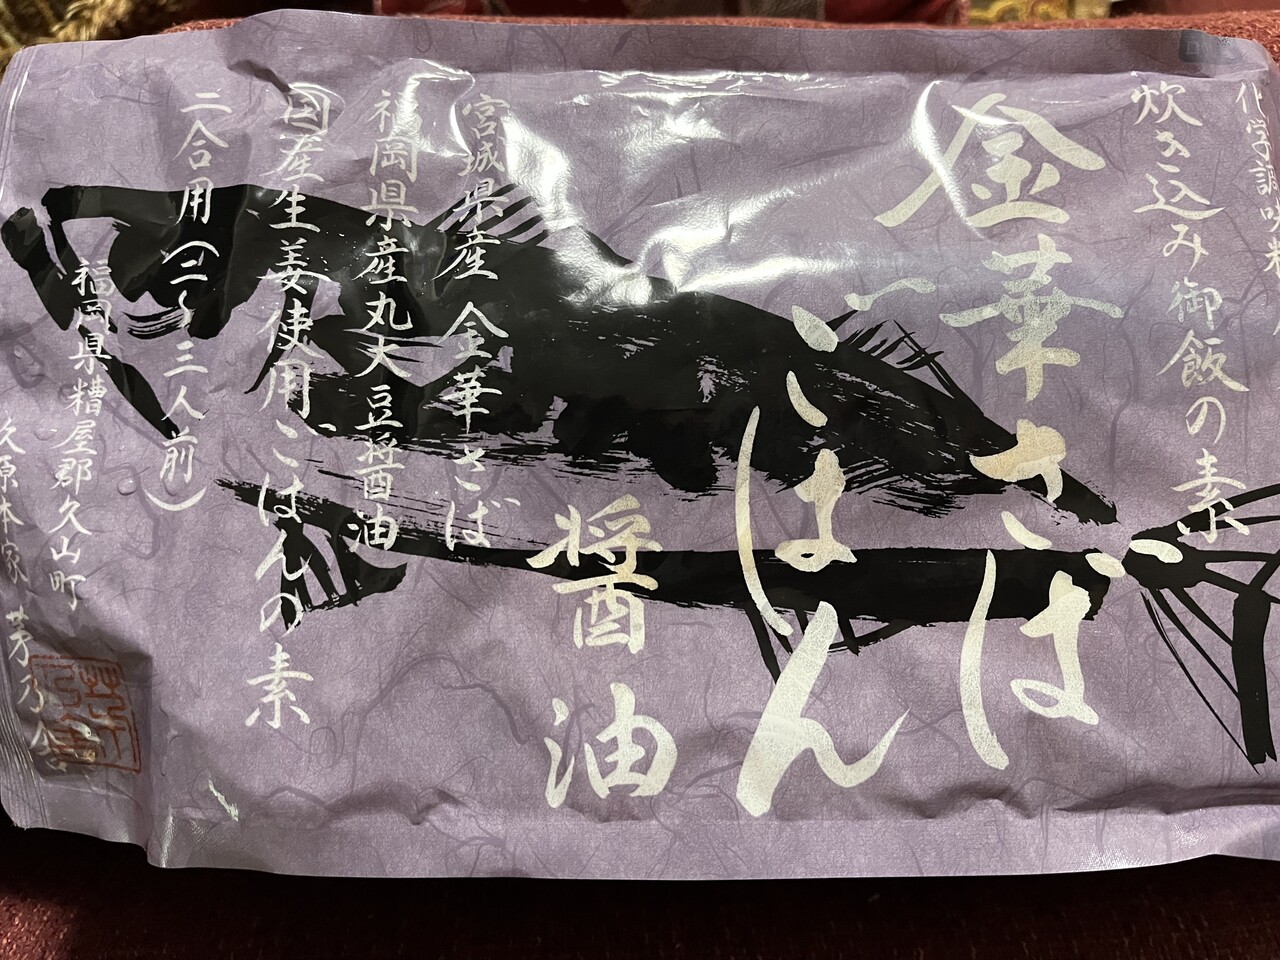 化学調味料
炊き込み御飯の素
金華さば
ごはん
醤油
宮城県産 金華さば
福岡県産丸大豆醤油
国産生姜使用ごはんの素
二合用(二〜三人前)
福岡県糟屋郡久山町
久原本家 茅乃舎